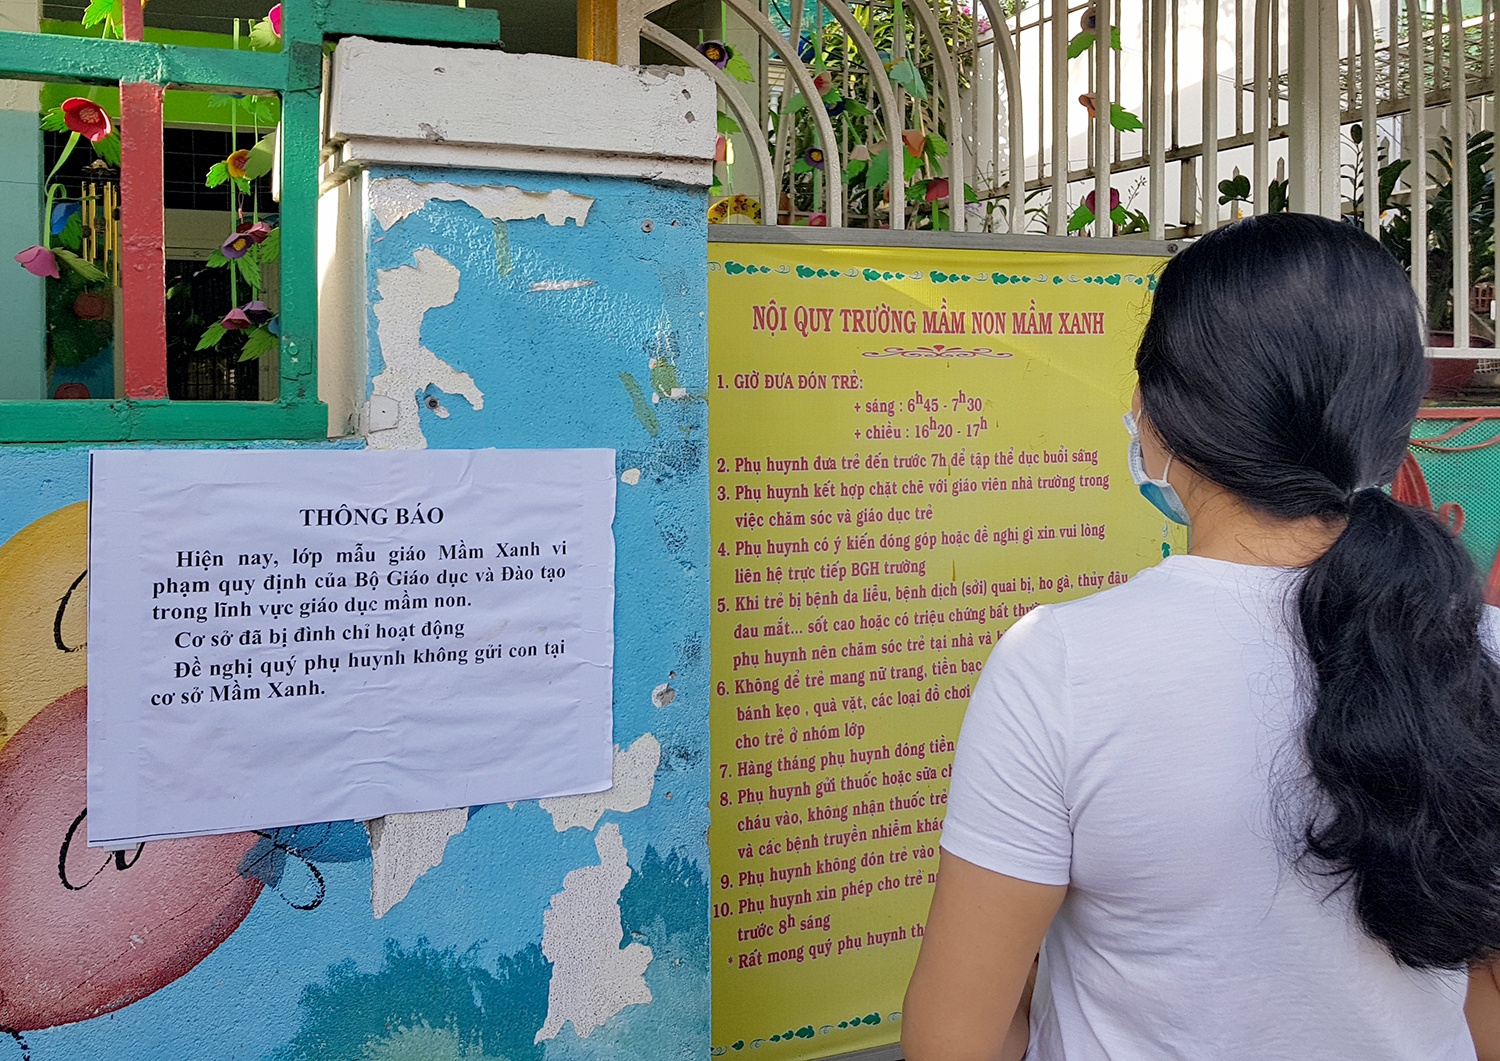 THÔNG BÁO
Hiện nay, lớp mẫu giáo Mầm Xanh vi
phạm quy định của Bộ Giáo dục và Đào tạo
trong lĩnh vực giáo dục mầm non.
Cơ sở đã bị đình chỉ hoạt động
Đề nghị quý phụ huynh không gửi con tại
cơ sở Mầm Xanh.
NỘI QUY TRƯỜNG MẦM NON MẦM XANH
1. GIỜ ĐƯA ĐÓN TRẺ:
+ sáng : 6h45 - 7h30
+ chiều : 16h20 - 17h
2. Phụ huynh đưa trẻ đến trước 7h để tập thể dục buổi sáng
3. Phụ huynh kết hợp chặt chẽ với giáo viên nhà trường trong
việc chăm sóc và giáo dục trẻ
4. Phụ huynh có ý kiến đóng góp hoặc đề nghị gì xin vui lòng
liên hệ trực tiếp BGH trường
5. Khi trẻ bị bệnh da liễu, bệnh dịch (sởi) quai bị, ho gà, thủy đậu
đau mắt... sốt cao hoặc có triệu chứng bất
phụ huynh nên chăm sóc trẻ tại nhà và
6. Không để trẻ mang nữ trang, tiền bạc
bánh kẹo , quà vặt, các loại đồ chơi
cho trẻ ở nhóm lớp
7. Hàng tháng phụ huynh đóng tiền
8. Phụ huynh gửi thuốc hoặc sữa
cháu vào, không nhận thuốc trẻ
và các bệnh truyền nhiễm
9. Phụ huynh không đón trẻ vào
10. Phụ huynh xin phép cho trẻ
trước 8h sáng
* Rất mong quý phụ huynh